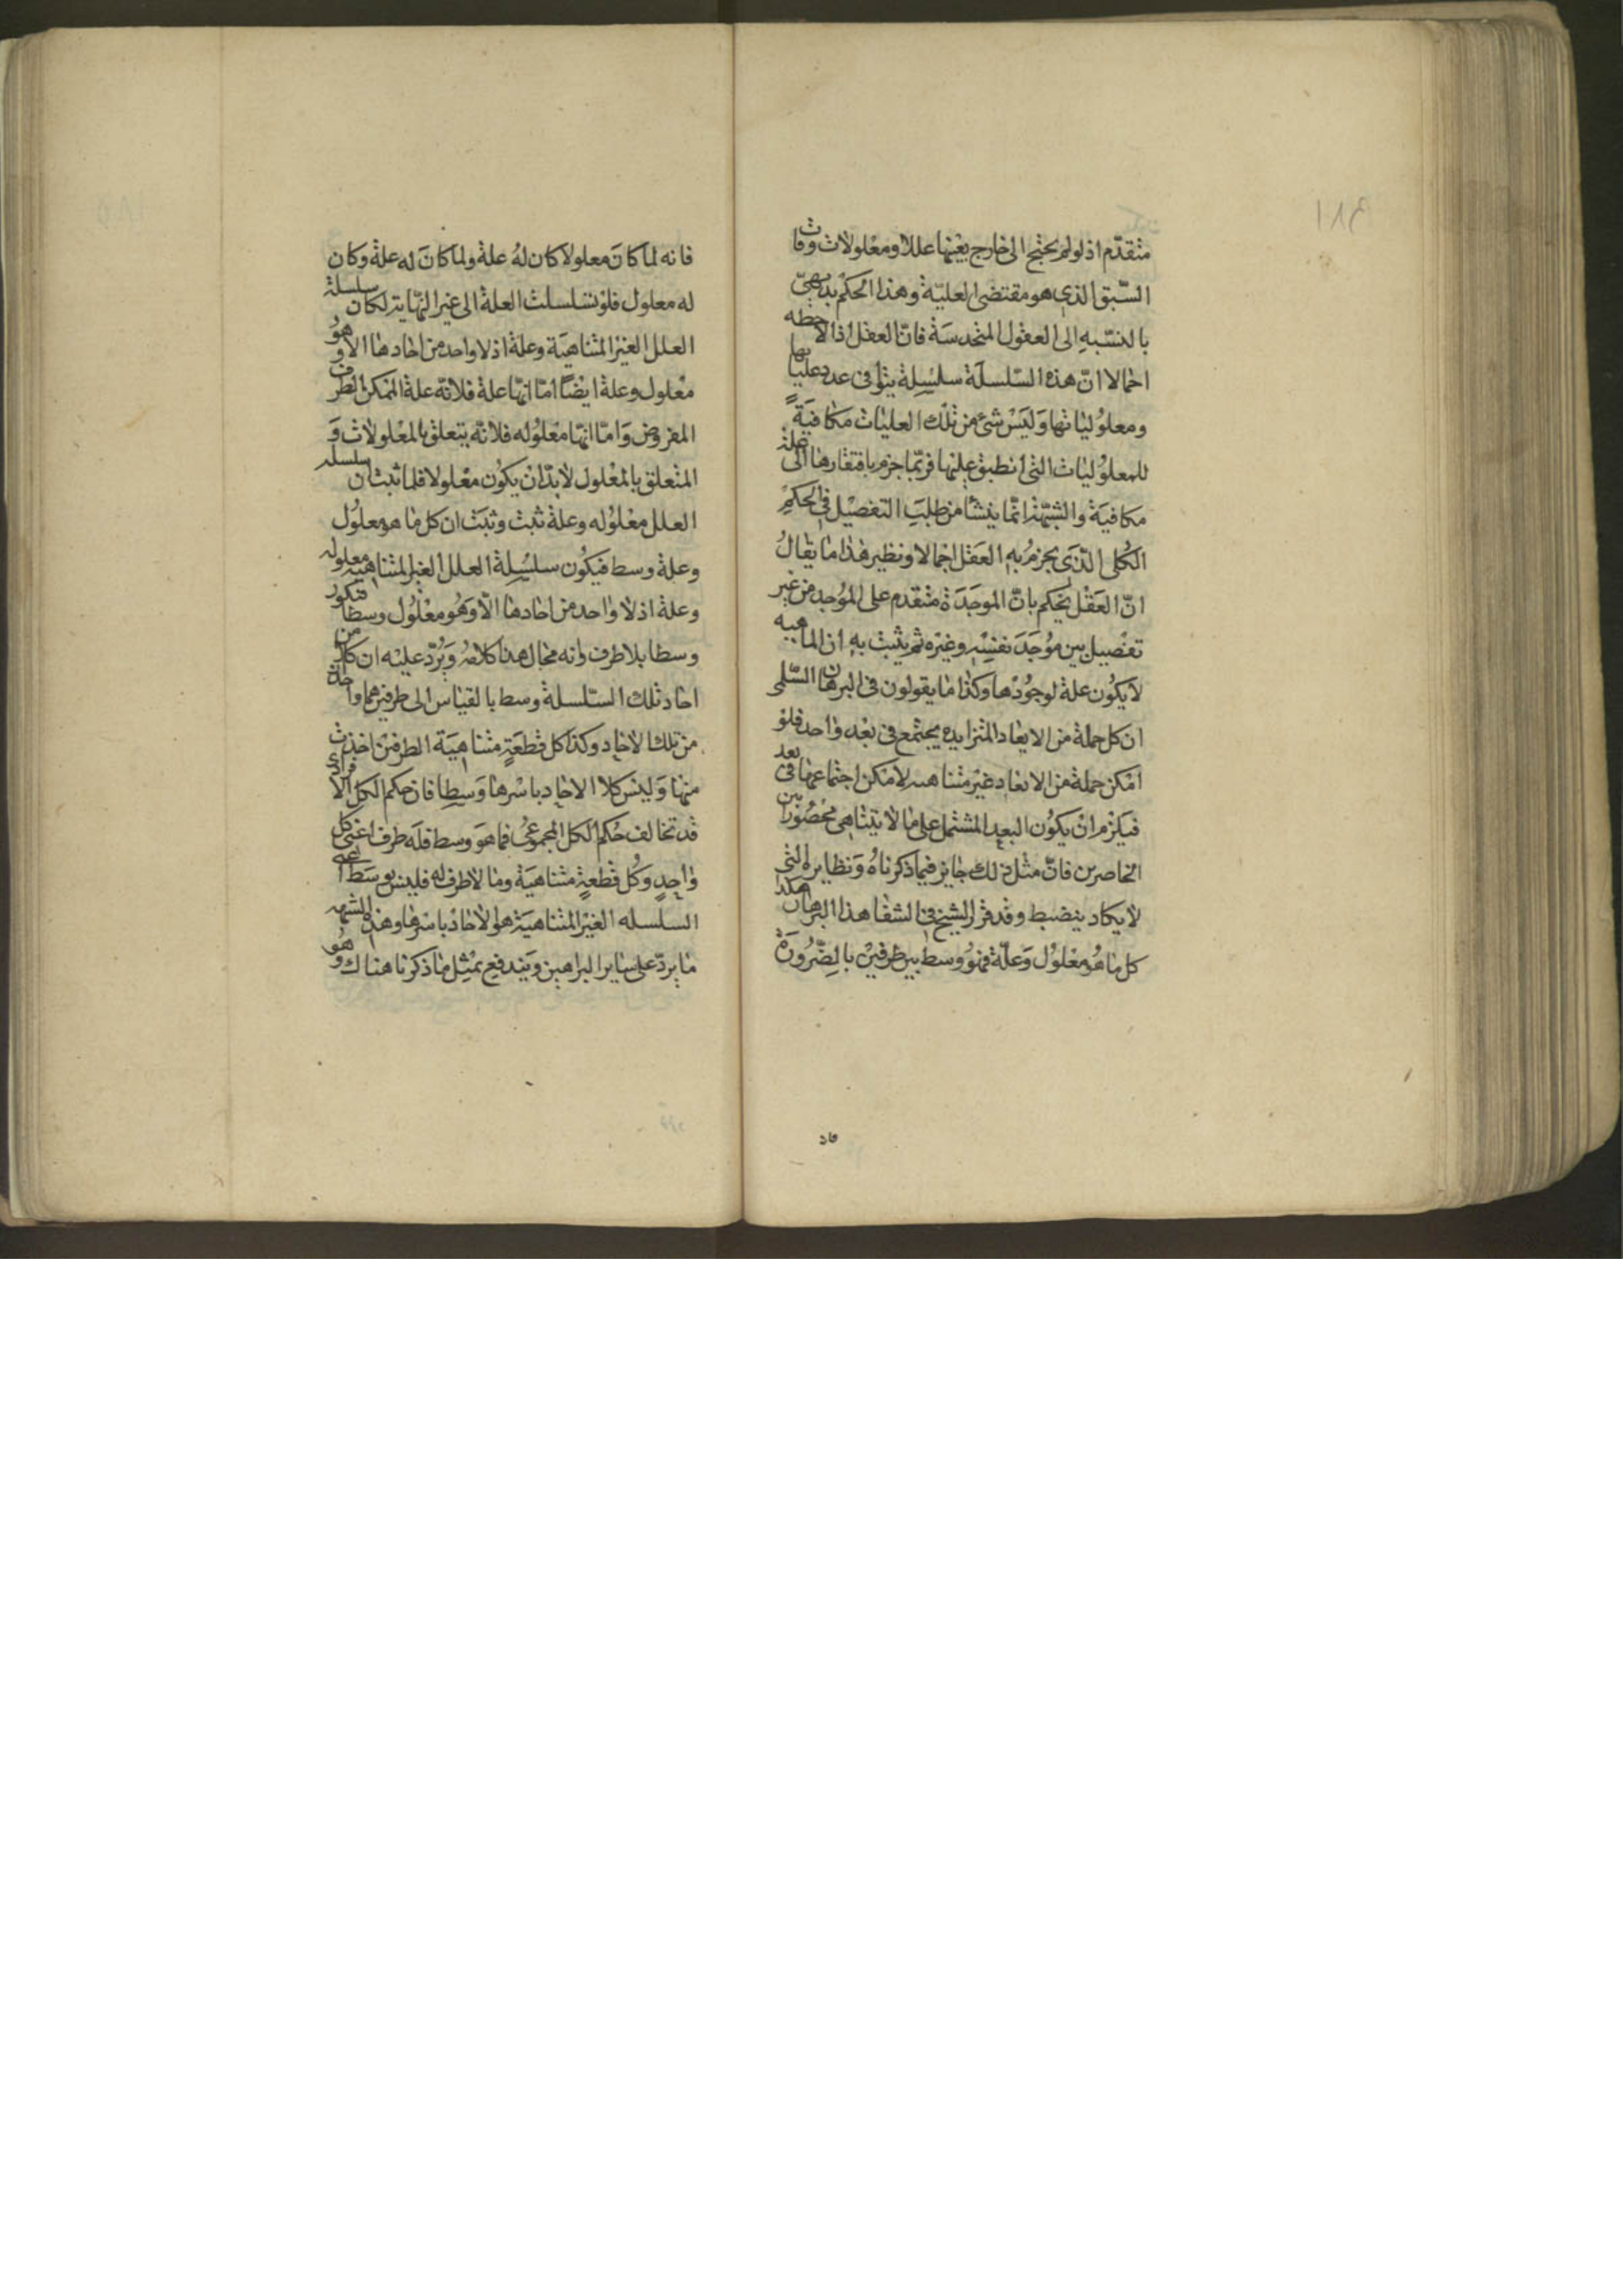 متقدّم اذ لو لم يحتج الى خارج يغنها عللا ومعلولات وفات
السّبق الذي هو مقتضى العليّة وهذا الحكم بديهيّ
بالنسّبه الى العقول المتحدسة فانّ العقل اذا لاحظه
اجمالا انّ هذه السّلسلة سلسلة يتوافى عدد عليتها
ومعلوليّاتها وليس شئ من تلك العليات مكافية
للمعلوليات التى انطبق عليها فربّما جزم بافتقارها الى علة
مكافية والشبّهة انّما ينشأ من طلب التفصيل فى الحكم
الكلى الذي يجزم به العقل اجمالا ونظير هذا ما يقال
انّ العقل يحكم بانّ الموجدة متقدم على الموجد من غير
تفصيل بين موجد نفسه وغيره ثم يثبت به ان الماهيه
لا يكون علة لوجودها وكذا ما يقولون فى البرهان السّلمى
ان كل جملة من الابعاد المتزايده يجتمع فى بعد واحد فلو
امكن جملة من الابعاد غير متناهيه لامكن اجتماعها فى بعد
فيلزم ان يكون البعد المشتمل على ما لا يتناهى محصورا بين
الحاصرين فانّ مثل ذلك جايز فيما ذكرناه ونظايره التى
لا يكاد ينضبط وقد قرر الشيخ فى الشفا هذا البرهان هكذا
كل ما هو معلول وعلّة فهو وسط بين طرفين بالضّرورة
فاد
فانه لما كان معلولا كان له علة ولما كان له علة وكان
له معلول فلو تسلسلت العلة الى غير النّهاية لكان سلسلة
العلل الغير المتناهية وعلة اذ لا واحد من احادها الا وهو
معلول وعلة ايضا امّا انّها علة فلانّه علة الممكن الطرف
المفروض وامّا انّها معلوله فلانّه يتعلق بالمعلولات و
المتعلق بالمعلول لا بدّ ان يكون معلولا فلما ثبت ان سلسله
العلل معلوله وعلة ثبت وثبت ان كل ما هو معلول
وعلة وسط فيكون سلسلة العلل الغير المتناهيه معلوله
وعلة اذ لا واحد من احادها الّا وهو معلول وسطا فتكون
وسطا بلا طرف وانه محال هذا كلامه ويردّ عليه ان كلا من
احاد تلك السّلسلة وسط بالقياس الى طرفين هما واحدة
من تلك الاحاد وكذا كل قطعة متناهية الطرفين اخذت
منها وليس كلا الاحاد باسرها وسطا فان حكم الكل الافرادى
قد تخالف حكم الكل المجموعى فما هو وسط فله طرف اعنى كل
واحد وكل قطعة متناهية وما لا طرف له فليس بوسط اعنى
السلسله الغير المتناهية هو الاحاد باسرها وهذه الشبهه
ما يردّ على ساير البراهين ويندفع بمثل ما ذكرنا هناك وهو